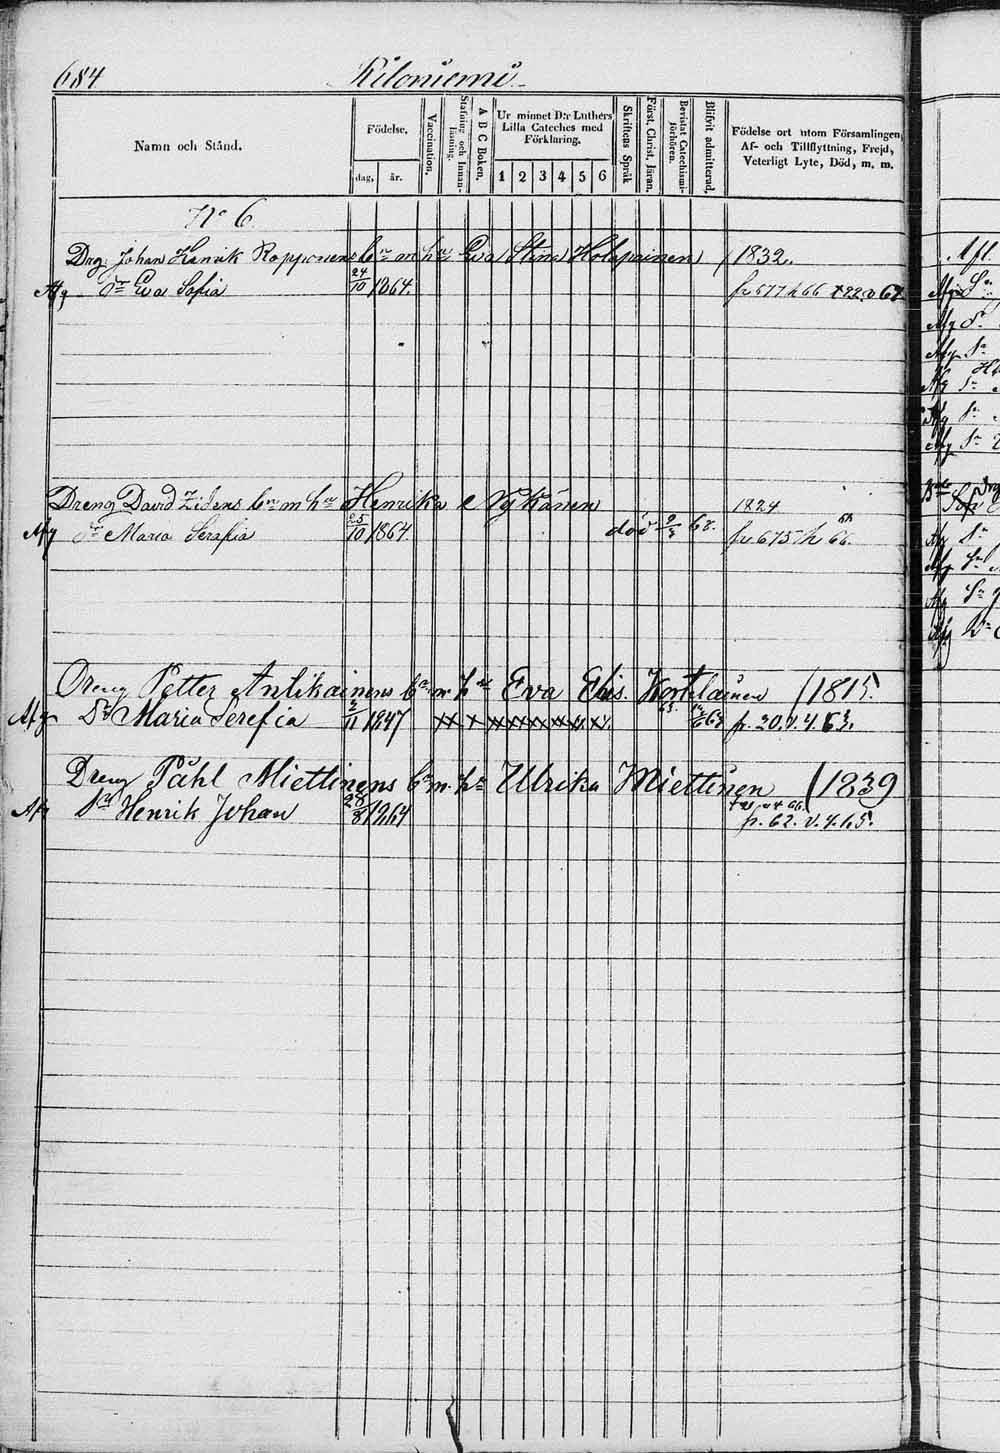 684 Kiloniemi
Namn och Stånd.
Födelse.
dag, år.
Vaccination.
Stafning och Innan-läsning.
A B C Boken.
Ur minnet D:r Luthers Lilla Cateches med Förklaring.
1 2 3 4 5 6
Skriftens Språk
Först. Christ. läran.
Bevistat Catechismi-förhören.
Blifvit admitterad.
Födelse ort utom Församlingen,
Af- och Tillflyttning, Frejd,
Veterligt Lyte, Död, m. m.
N:o 6
Drg. Johan Henrik Rapponens b:n m h:u Eva Stina Holopainen / 1832.
Afg d:r Eva Sofia 24/10 1864. fr 677 h 66
Dreng David Zidens b:n m h:u Henrika Nykänen 1824
Afg d:r Maria Serafia 25/10 1864. död 68. fr 675 h 66.
Dreng Petter Antikainens b:n m h:u Eva Elis. Kortelainen / 1815.
Afg D:r Maria Serefia 2/11 1847 X X X X X X X X X 63 fr. 30. v. 4. 63.
Dreng Påhl Miettinens b:n m. h:u Ulrika Miettinen / 1839
Afg S:n Henrik Johan 28/8 1864 fr. 62. v. 4. 65.